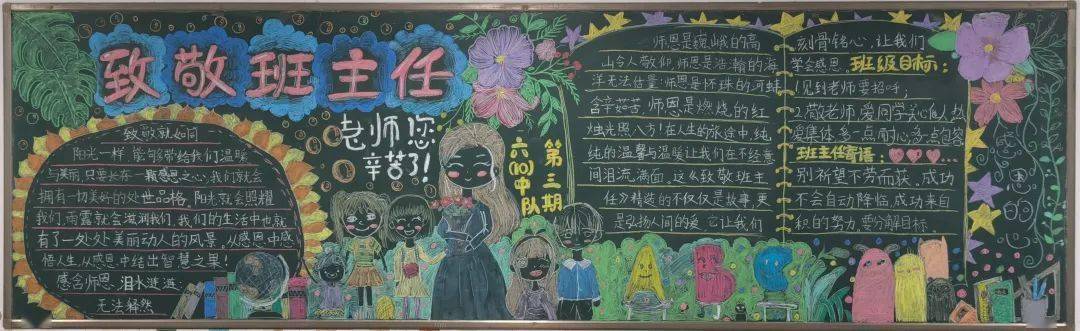 致敬班主任
老师您
辛苦了!
第三期
六(10)中队
致敬就如同
阳光一样,能够带给我们温暖
与美丽,只要长存一颗感恩之心,我们就会
拥有一切美好的处世品格。阳光就会照耀
我们,雨露就会滋润我们,我们的生活中也就
有了一处处美丽动人的风景,从感恩中感
悟人生,从感恩中结出智慧之果!
感念师恩,泪水涟涟
无法释然
师恩是巍峨的高
山令人敬仰,师恩是浩瀚的海
洋无法估量!师恩是怀珠的河蚌
含辛茹苦,师恩是燃烧的红
烛光照八方!在人生的旅途中,纯
纯的温馨与温暖让我们在不经意
间泪流满面。这《致敬班主
任》精装的不仅仅是故事,更
是弘扬人间的爱,它让我们
刻骨铭心,让我们
学会感恩。班级目标:
1.见到老师要招呼;
2.敬老师,爱同学,关心他人,热
爱集体,多一点耐心,多一点包容
班主任寄语:
别祈望不劳而获。成功
不会自动降临,成功来自
积的努力,要分解目标,
A B C